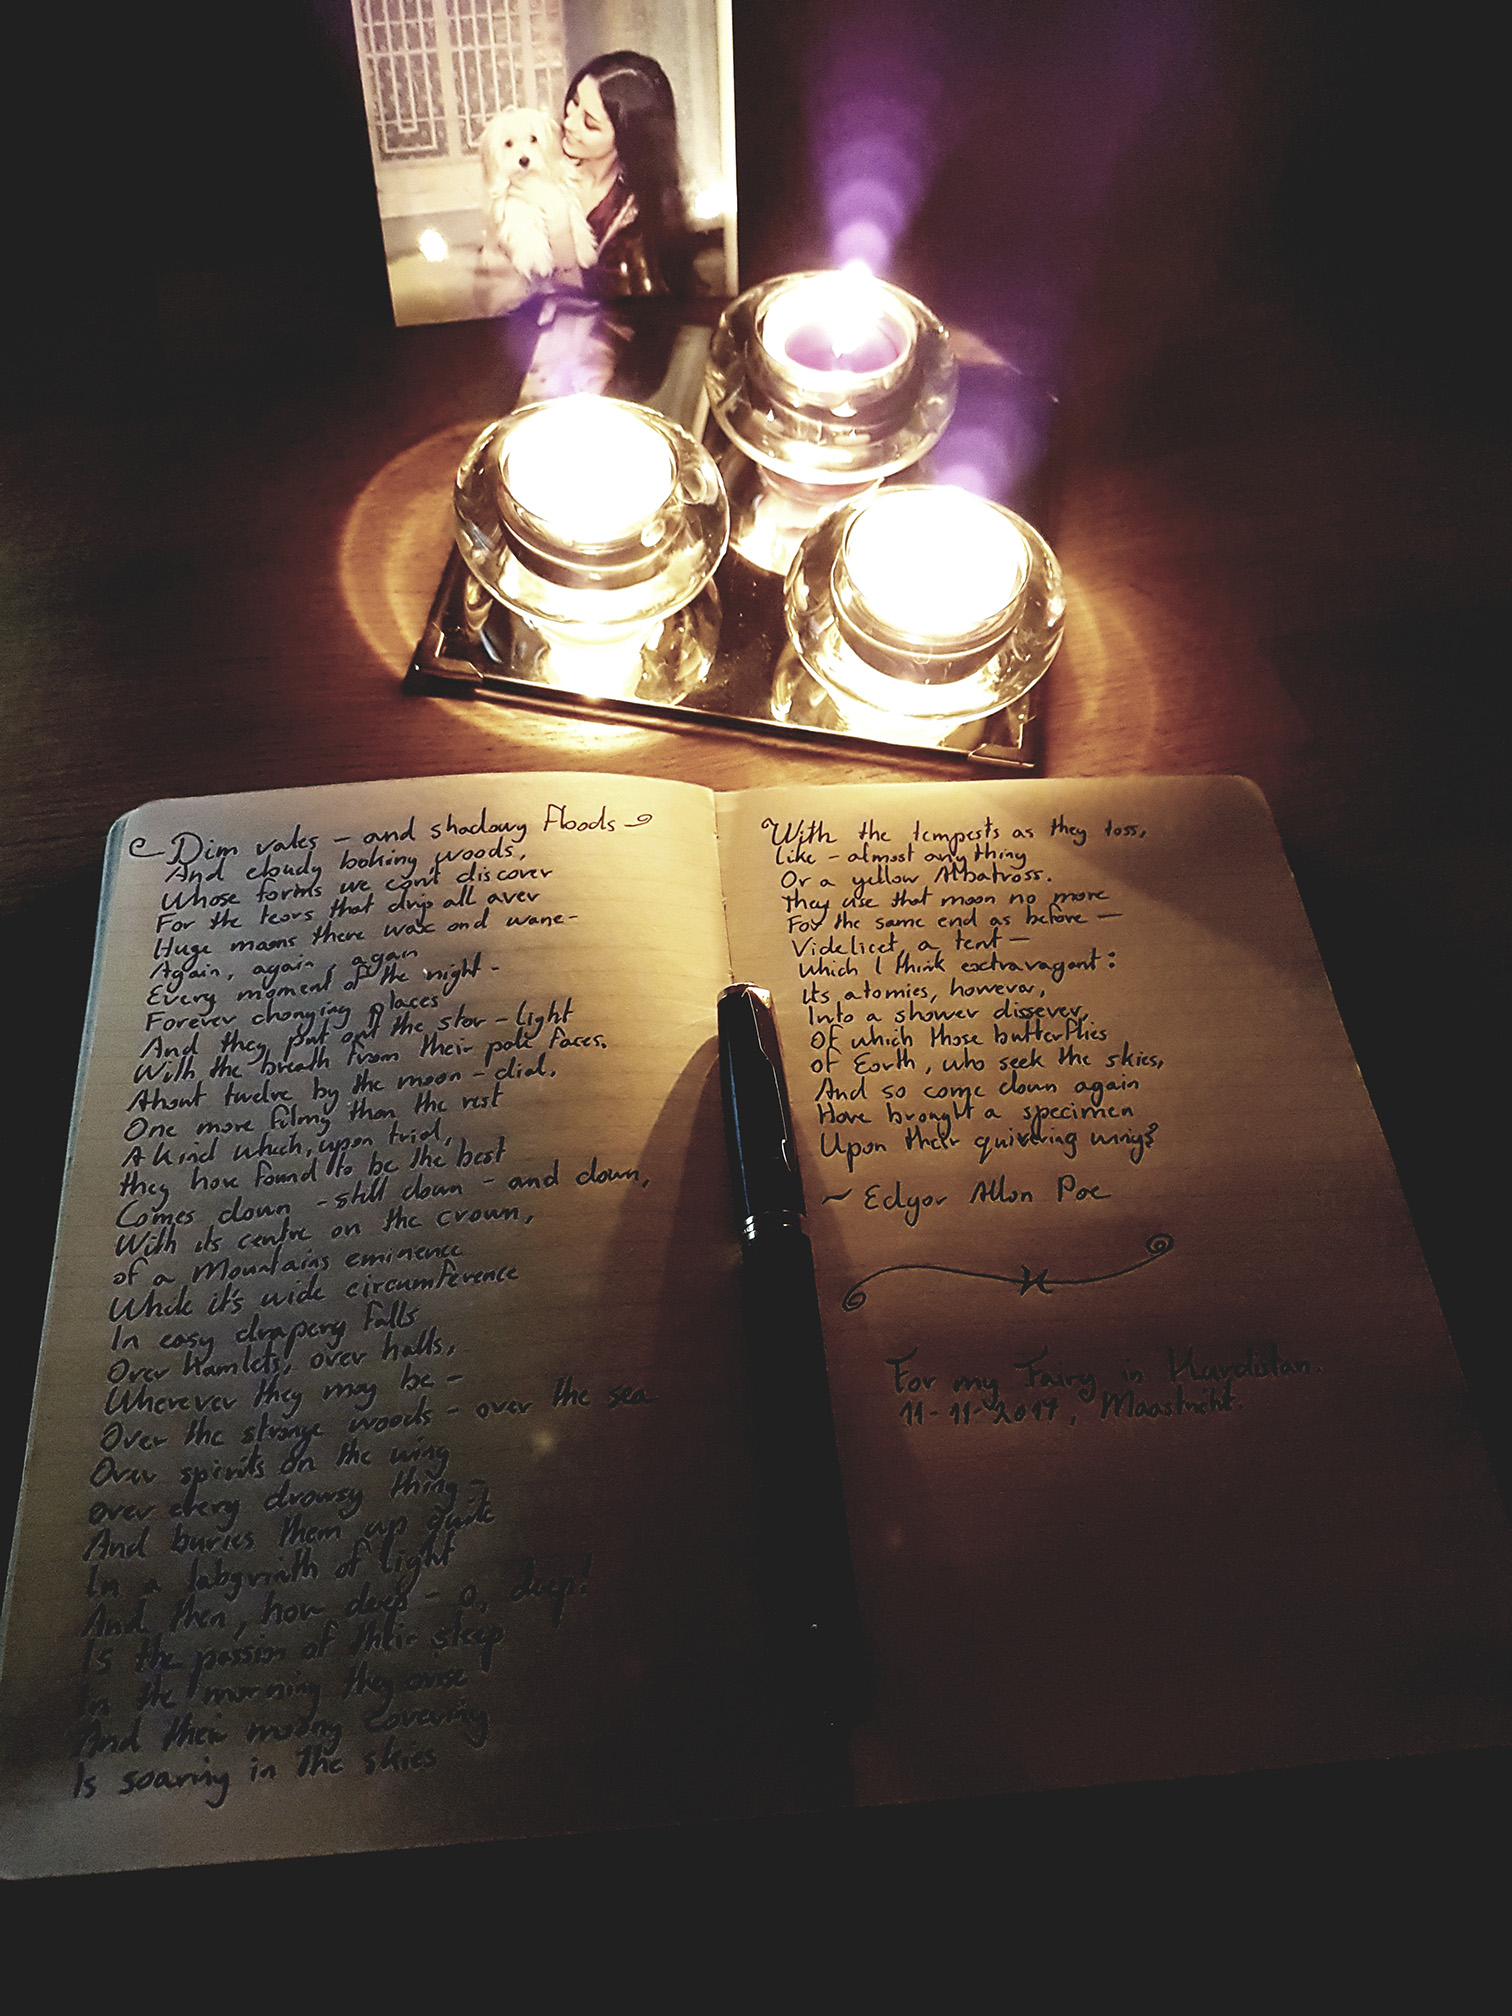 Dim vales - and shadowy Floods
And cloudy looking woods,
Whose forms we can't discover
For the tears that drip all over
Huge moons there wax and wane-
Again, again, again
Every moment of the night -
Forever changing places
And they put out the star - light
With the breath from their pale faces.
About twelve by the moon - dial,
One more filmy than the rest
A kind which, upon trial,
they have found to be the best
Comes down - still down - and down,
With its centre on the crown,
of a Mountains eminence
While it's wide circumference
In easy drapery falls
Over Hamlets, over halls,
Wherever they may be -
Over the strange woods - over the sea
Over spirits on the wing
over every drowsy thing -
And buries them up quite
In a labyrinth of light
And then, how deep - O, deep!
Is the passion of their sleep
In the morning they arise
And their moony covering
Is soaring in the skies
With the tempests as they toss,
like - almost any thing
Or a yellow Albatross.
They use that moon no more
For the same end as before —
Videlicet, a tent —
which I think extravagant:
Its atomies, however,
Into a shower dissever,
Of which those butterflies
of Earth, who seek the skies,
And so come down again
Have brought a specimen
Upon their quivering wings
~ Edgar Allan Poe
For my Fairy in Kurdistan.
11-11-2017, Maastricht.